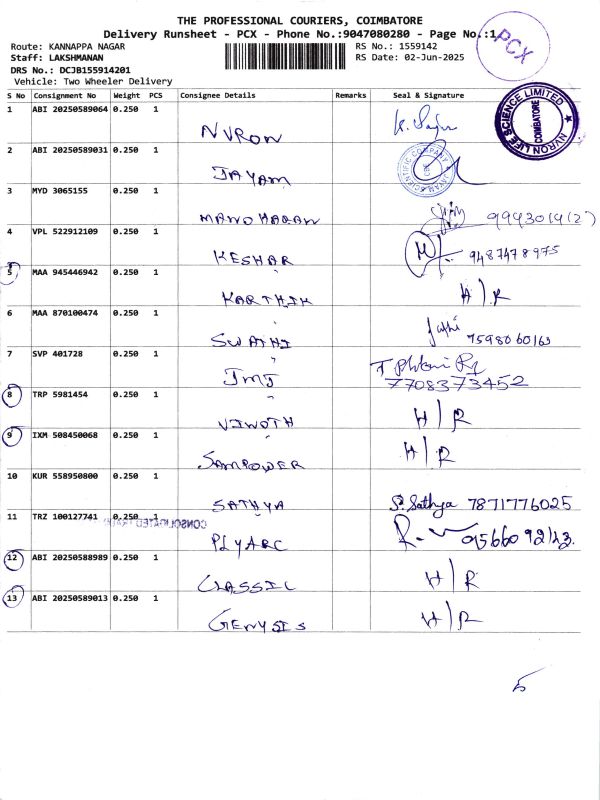 THE PROFESSIONAL COURIERS, COIMBATORE
Delivery Runsheet - PCX - Phone No.:9047080280 - Page No.:1
Route: KANNAPPA NAGAR
RS No.: 1559142
Staff: LAKSHMANAN
RS Date: 02-Jun-2025
DRS No.: DCJB155914201
Vehicle: Two Wheeler Delivery
PCX
S No Consignment No Weight PCS Consignee Details Remarks Seal & Signature
NVRON LIFE SCIENCE LIMITED
COIMBATORE
1 ABI 20250589064 0.250 1
NVRON
2 ABI 20250589031 0.250 1
JAYAM
3 MYD 3065155 0.250 1
MANOHARAN
4 VPL 522912109 0.250 1
KESHAR 9487478975
5 MAA 945446942 0.250 1
KARTHIK H/R
6 MAA 870100474 0.250 1
SWATHI 7598060163
7 SVP 401728 0.250 1
JMJ 7708373452
8 TRP 5981454 0.250 1
VINOTH H/R
9 IXM 508450068 0.250 1
SAMPOWER H/R
10 KUR 558950800 0.250 1
SATHYA S. Sathya 7871776025
11 TRZ 100127741 0.250 1
PLYARC
12 ABI 20250588989 0.250 1
CLASSIC H/R
13 ABI 20250589013 0.250 1
GENYSIS H/R